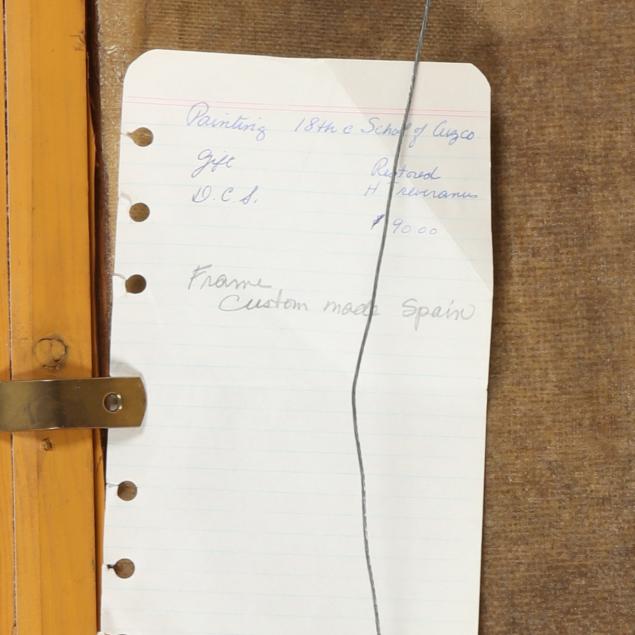 Painting 18th c School of Cuzco
Gift Restored
D.C.S. H Treveranus
$90.00
Frame
Custom made Spain